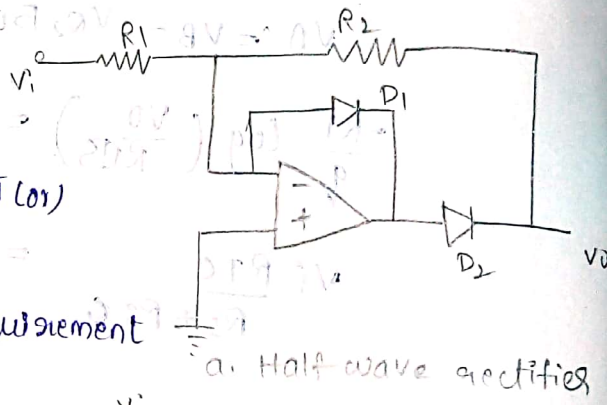 R1
R2
Vi
D1
(or)
-
+
D2
Vo
uirement
a. Half wave rectifier
Vi